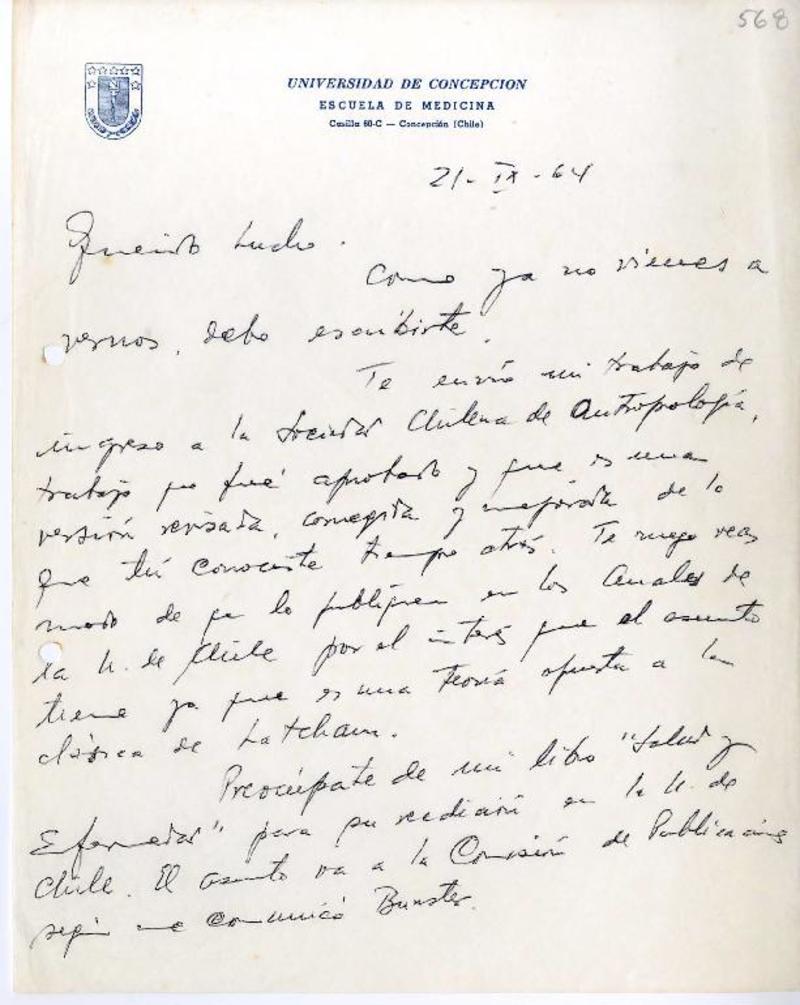 568
UNIVERSIDAD DE CONCEPCION
ESCUELA DE MEDICINA
Casilla 60-C — Concepción (Chile)
21-IX-64
Querido Lucho.
Como ya no vienes a
vernos, debo escribirte.
Te envío mi trabajo de
ingreso a la Sociedad Chilena de Antropología,
trabajo que fué aprobado y que es una
versión revisada, corregida y mejorada de lo
que tú conociste tiempo atrás. Te ruego veas
modo de que lo publiquen en los Anales de
la U. de Chile por el interés que el asunto
tiene ya que es una teoría opuesta a la
clásica de Latcham.
Preocúpate de mi libro "Salud y
Enfermedad" para su reedición en la U. de
Chile. El asunto va a la Comisión de Publicaciones
según me comunicó Bunster.